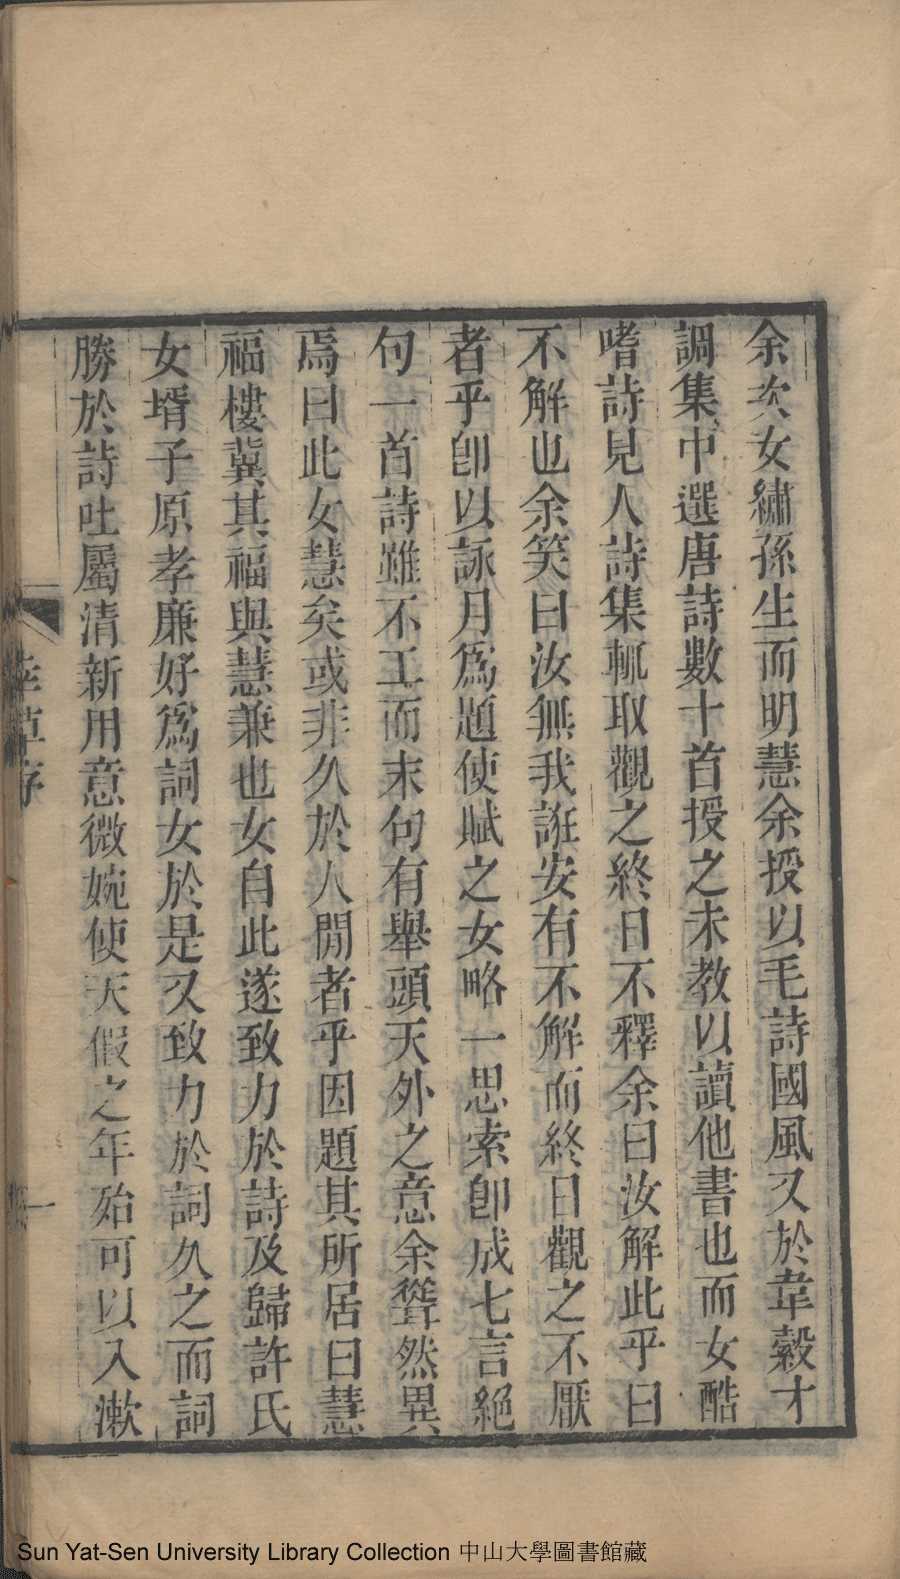 余次女繡孫生而明慧余授以毛詩國風又於韋縠才
調集中選唐詩數十首授之未教以讀他書也而女酷
嗜詩見人詩集輒取觀之終日不釋余曰汝解此乎曰
不解也余笑曰汝無我誑安有不解而終日觀之不厭
者乎卽以詠月爲題使賦之女略一思索卽成七言絕
句一首詩雖不工而末句有舉頭天外之意余聳然異
焉曰此女慧矣或非久於人閒者乎因題其所居曰慧
福樓冀其福與慧兼也女自此遂致力於詩及歸許氏
女壻子原孝廉好爲詞女於是又致力於詞久之而詞
勝於詩吐屬清新用意微婉使天假之年殆可以入漱
草序
一
Sun Yat-Sen University Library Collection 中山大學圖書館藏